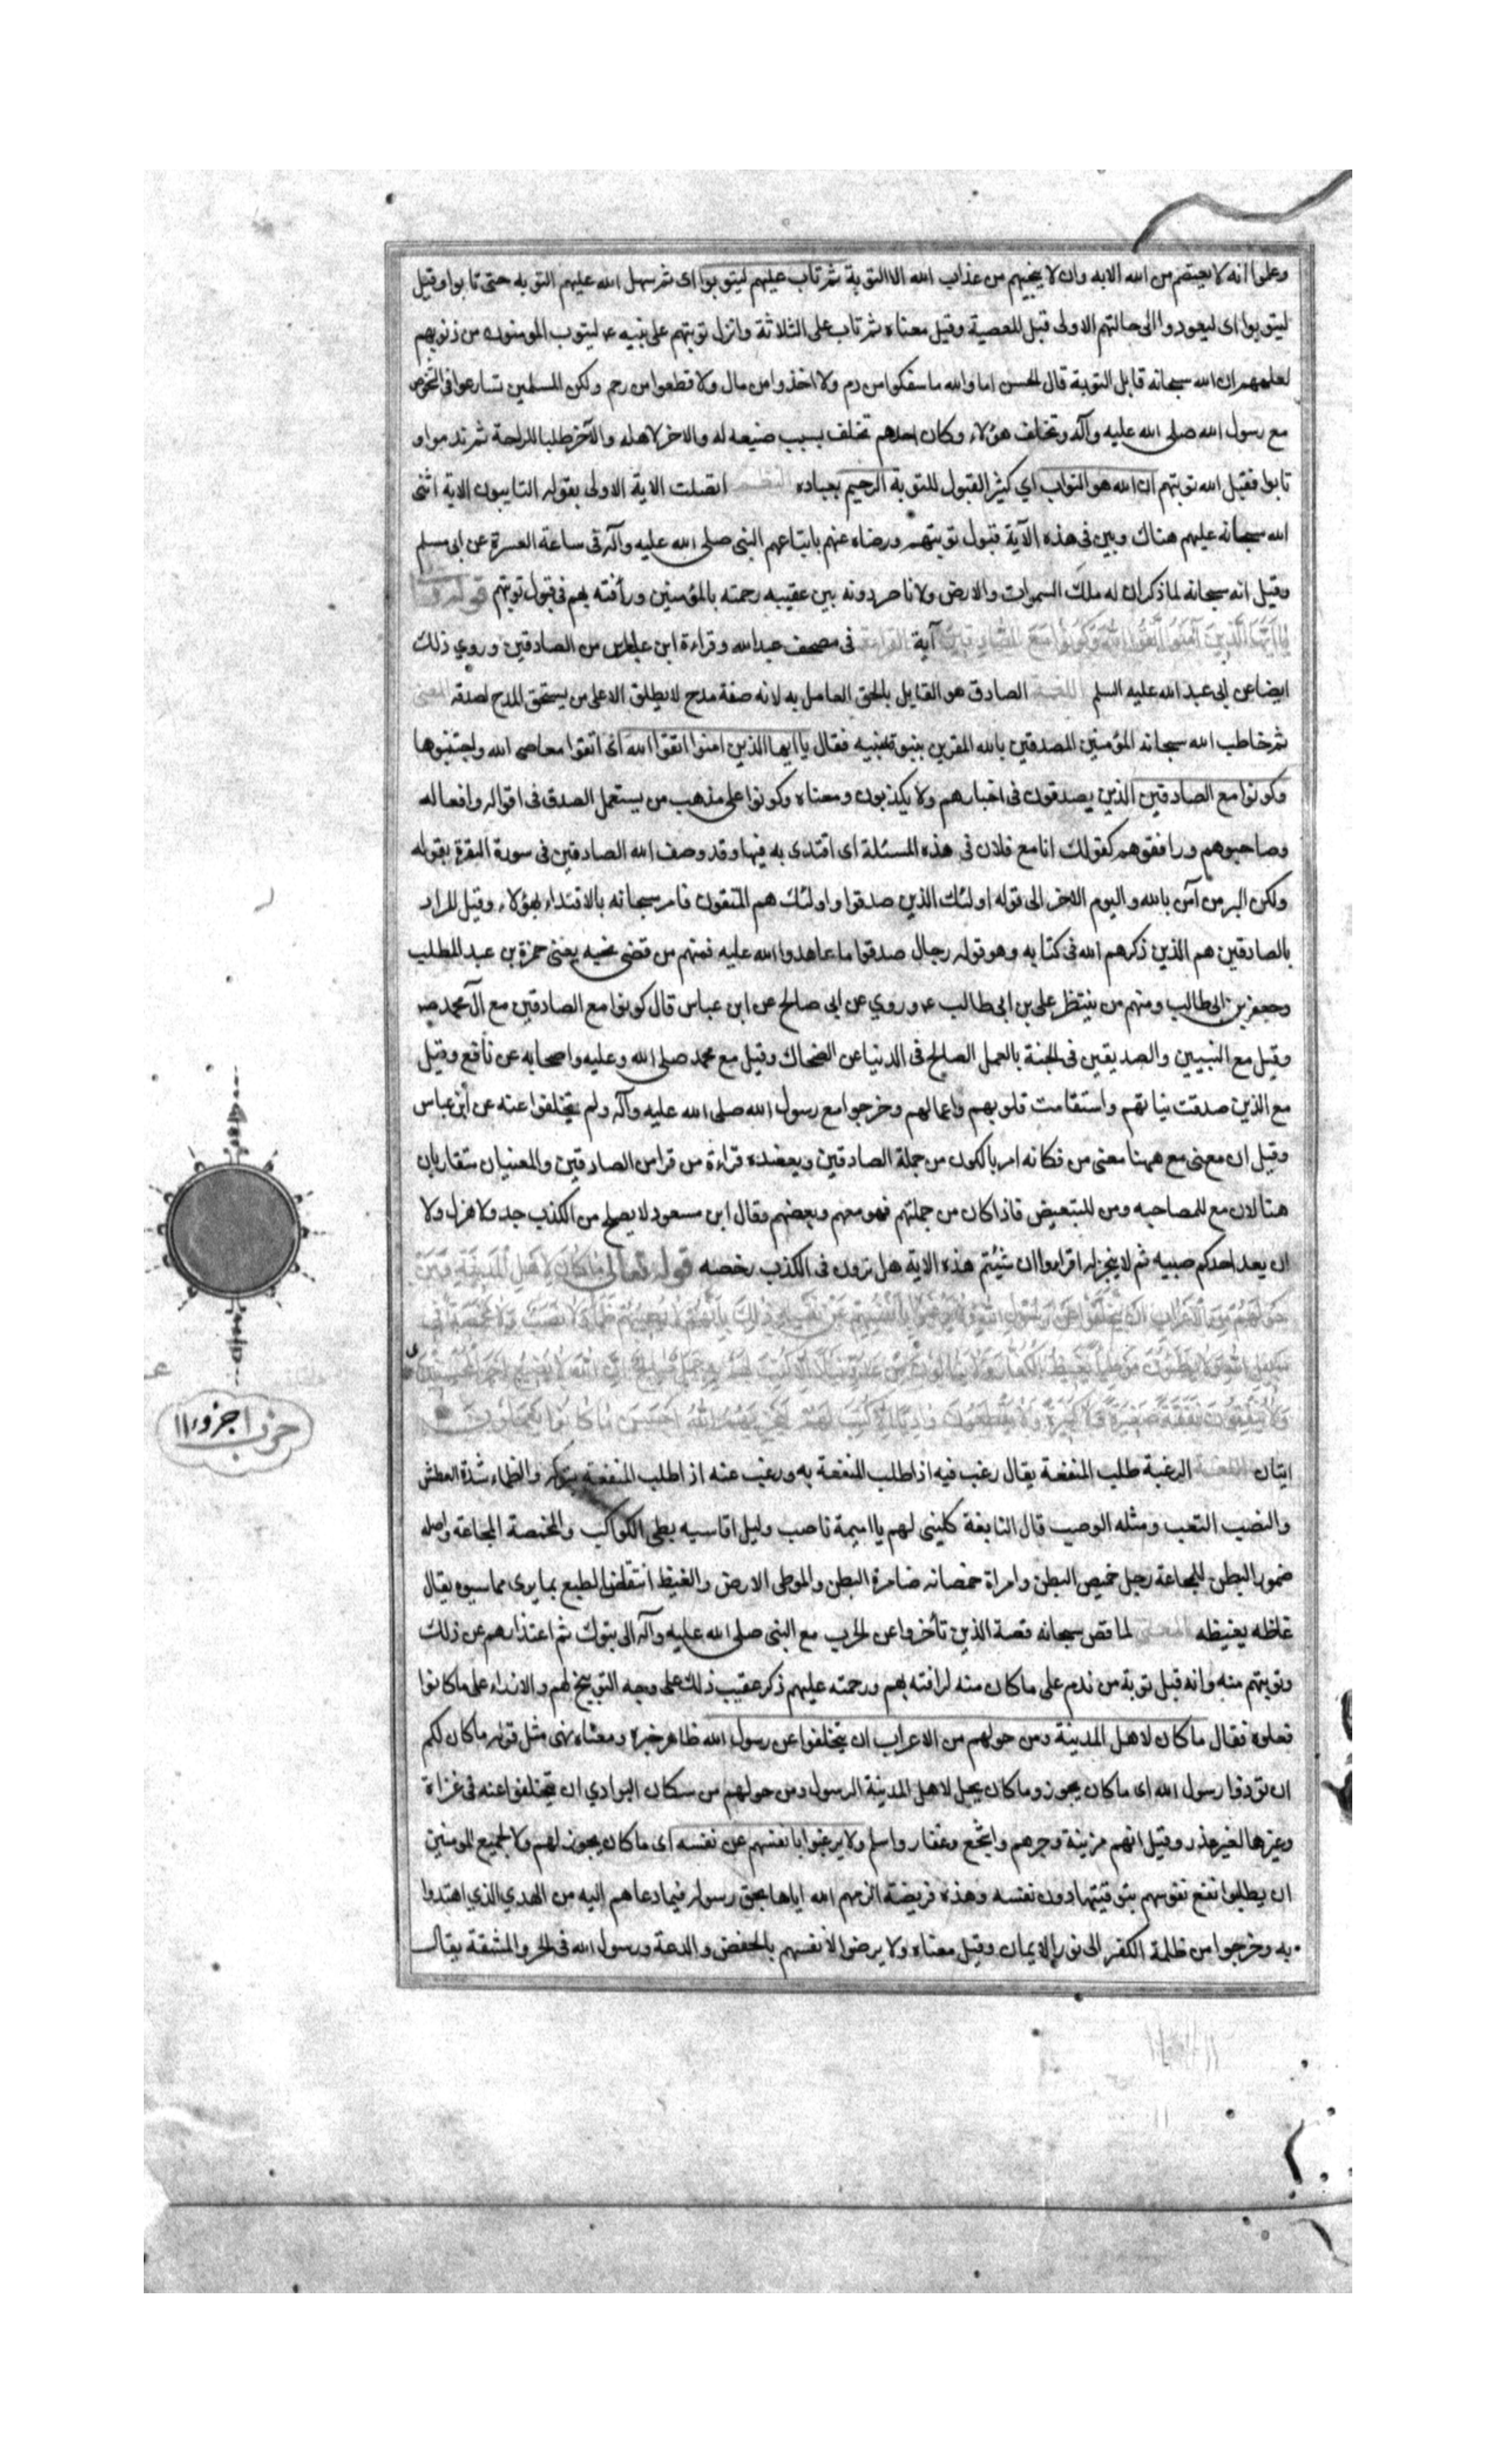 وعلموا انه لا يعتصم من الله الا به وان لا ينجيهم من عذاب الله الا التوبة ثم تاب عليهم ليتوبوا اى ثم سهل الله عليهم التوبه حتى تابوا وقيل
ليتوبوا اى ليعودوا الى حالتهم الاولى قبل المعصية وقيل معناه ثم تاب على الثلاثة وانزل توبتهم على نبيه عم ليتوب المومنون من ذنوبهم
لعلمهم ان الله سبحانه قابل التوبة قال الحسن اما والله ما سفكوا من دم ولا اخذوا من مال ولا قطعوا من رحم ولكن المسلمين تسارعوا فى الشخوص
مع رسول الله صلى الله عليه وآله وتخلف هؤلاء وكان احدهم تخلف بسبب ضيعه له والاخر لاهله والآخر طلبا للراحة ثم ندموا و
تابوا فقبل الله توبتهم ان الله هو التواب اي كثير القبول للتوبة الرحيم بعباده النظم اتصلت الاية الاولى بقوله التايبون الاية اثنى
الله سبحانه عليهم هناك وبين فى هذه الآية قبول توبتهم ورضاه عنهم باتباعهم النبى صلى الله عليه وآله فى ساعة العسرة عن ابى مسلم
وقيل انه سبحانه لما ذكر ان له ملك السموات والارض ولا ناصر دونه بين عقيبه رحمته بالمؤمنين ورأفته بهم فى قبول توبتهم قوله
يا ايها الذين آمنوا اتقوا الله وكونوا مع الصادقين آية القراءة فى مصحف عبد الله وقراءة ابن عباس من الصادقين وروي ذلك
ايضا عن ابى عبد الله عليه السلم اللغة الصادق هو القايل بالحق العامل به لانه صفة مدح لا يطلق الا على من يستحق المدح لصدقه المعنى
ثم خاطب الله سبحانه المؤمنين المصدقين بالله المقرين بنبوة نبيه فقال يا ايها الذين امنوا اتقوا الله اى اتقوا معاصى الله واجتنبوها
وكونوا مع الصادقين الذين يصدقون فى اخبارهم ولا يكذبون ومعناه وكونوا على مذهب من يستعمل الصدق فى اقواله وافعاله
وصاحبوهم ورافقوهم كقولك انا مع فلان فى هذه المسئلة اى اقتدى به فيها وقد وصف الله الصادقين فى سورة البقرة بقوله
ولكن البر من آمن بالله واليوم الاخر الى قوله اولئك الذين صدقوا واولئك هم المتقون فامر سبحانه بالاقتداء بهؤلاء وقيل المراد
بالصادقين هم الذين ذكرهم الله فى كتابه وهو قوله رجال صدقوا ما عاهدوا الله عليه فمنهم من قضى نحبه يعنى حمزة بن عبد المطلب
وجعفر بن ابى طالب ومنهم من ينتظر على بن ابى طالب عم وروي عن ابى صالح عن ابن عباس قال كونوا مع الصادقين مع آل محمد صم
وقيل مع النبيين والصديقين فى الجنة بالعمل الصالح فى الدنيا عن الضحاك وقيل مع محمد صلى الله وعليه واصحابه عن نافع وقيل
مع الذين صدقت نياتهم واستقامت قلوبهم واعمالهم وخرجوا مع رسول الله صلى الله عليه وآله ولم يتخلفوا عنه عن ابن عباس
وقيل ان معنى مع ههنا معنى من فكانه امر بالكون من جملة الصادقين ويعضده قراءة من قرا من الصادقين والمعنيان متقاربان
هنا لان مع للمصاحبه ومن للتبعيض فاذا كان من جملتهم فهو معهم وبعضهم وقال ابن مسعود لا يصلح من الكذب جد ولا هزل ولا
ان يعد احدكم صبيه ثم لا ينجز له اقراوا ان شئتم هذه الاية هل ترون فى الكذب رخصه قوله تعالى ما كان لاهل المدينة ومن
حولهم من الاعراب ان يتخلفوا عن رسول الله ولا يرغبوا بانفسهم عن نفسه ذلك بانهم لا يصيبهم ظمأ ولا نصب ولا مخمصة فى
سبيل الله ولا يطئون موطئا يغيظ الكفار ولا ينالون من عدو نيلا الا كتب لهم به عمل صالح ان الله لا يضيع اجر المحسنين
ولا ينفقون نفقة صغيرة ولا كبيرة ولا يقطعون واديا الا كتب لهم ليجزيهم الله احسن ما كانوا يعملون
ايتان اللغة الرغبة طلب المنفعة يقال رغب فيه اذا طلب المنفعة به ورغب عنه اذا طلب المنفعة بتركه والظماء شدة العطش
والنصب التعب ومثله الوصب قال النابغة كلينى لهم يا اميمة ناصب وليل اقاسيه بطى الكواكب والمخمصة المجاعة واصله
ضمور البطن للمجاعة رجل خميص البطن وامراة خمصانه ضامرة البطن والموطى الارض والغيظ انتقاض الطبع بما يرى مما يسوه يقال
غاظه يغيظه المعنى لما قص سبحانه قصة الذين تأخروا عن الخروج مع النبى صلى الله عليه وآله الى تبوك ثم اعتذارهم عن ذلك
وتوبتهم منه وانه قبل توبة من ندم على ما كان منه لرافته بهم ورحمته عليهم ذكر عقيب ذلك على وجه التوبيخ لهم والازراء على ما كانوا
فعلوه فقال ما كان لاهل المدينة ومن حولهم من الاعراب ان يتخلفوا عن رسول الله ظاهره خبر ومعناه نهى مثل قوله ما كان لكم
ان توذوا رسول الله اى ما كان يجوز وما كان يحل لاهل المدينة الرسول ومن حولهم من سكان البوادي ان يتخلفوا عنه فى غزاة
وغيرها لغير عذر وقيل انهم مزينة وجرهم واشجع وغفار واسلم ولا يرغبوا بانفسهم عن نفسه اى ما كان يجوز لهم ولا لجميع المومنين
ان يطلبوا نفع نفوسهم بتوقيتها دون نفسه وهذه فريضة الزمهم الله اياها بحق رسوله فيما دعاهم اليه من الهدي الذي اهتدوا
به وخرجوا من ظلمة الكفر الى نور الايمان وقيل معناه ولا يرضوا لانفسهم بالخفض والدعة ورسول الله فى الحر والمشقة يقال
حزب ا جزو ١١